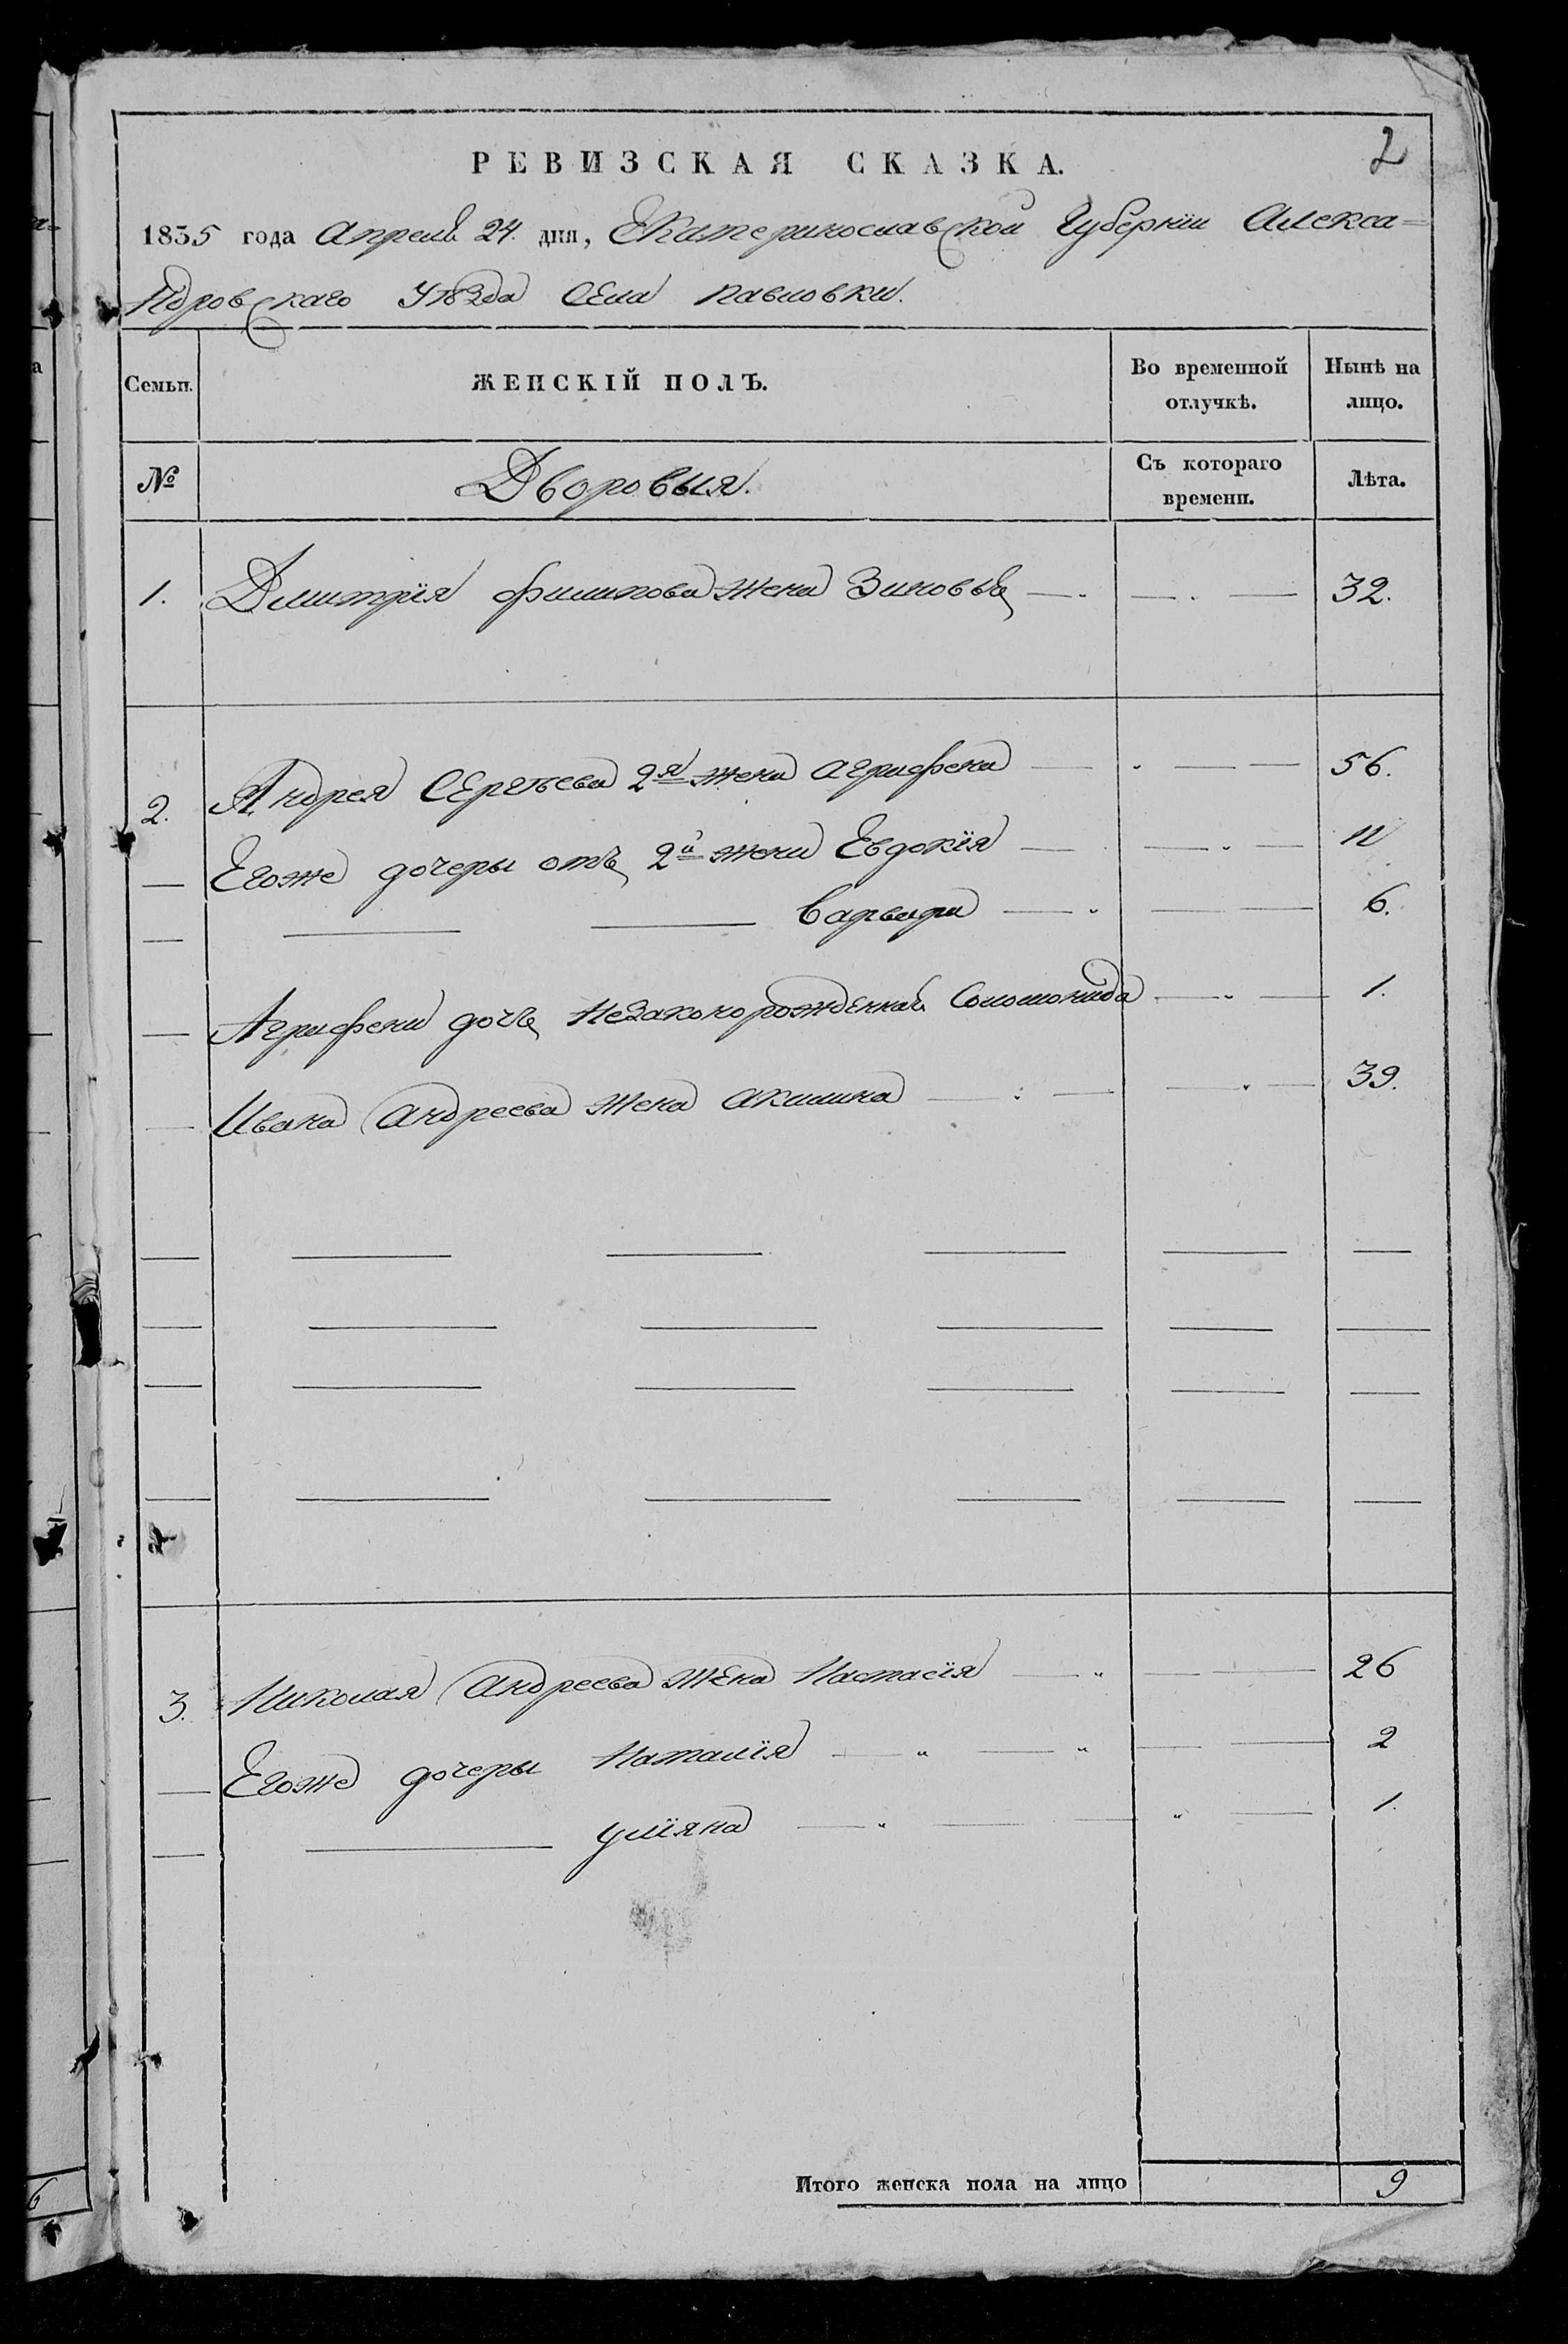 2
РЕВИЗСКАЯ СКАЗКА.
1835 года Апреля 24. дня, Екатеринославской Губернии Алекса=
ндровскаго Уѣзда Села Павловки.
Семьи. ЖЕНСКІЙ ПОЛЪ. Во временной отлучкѣ. Нынѣ на лицо.
№ Дворовыя. Съ котораго времени. Лѣта.
1. Дмитрія Филипова жена Зиновья — 32.
2. Андрея Сергѣева 2я жена Агрифена — 56.
— Егоже дочеры отъ 2й жены Евдокія — 11
— — — Варвара — 6.
— Агрифены дочь незаконорожденная Соломонида — 1.
— Ивана Андреева жена Акилина — 39.
3. Николая Андреева жена Настасія — 26
— Егоже дочеры Наталія — 2
— — Уліяна — 1.
Итого женска пола на лицо 9